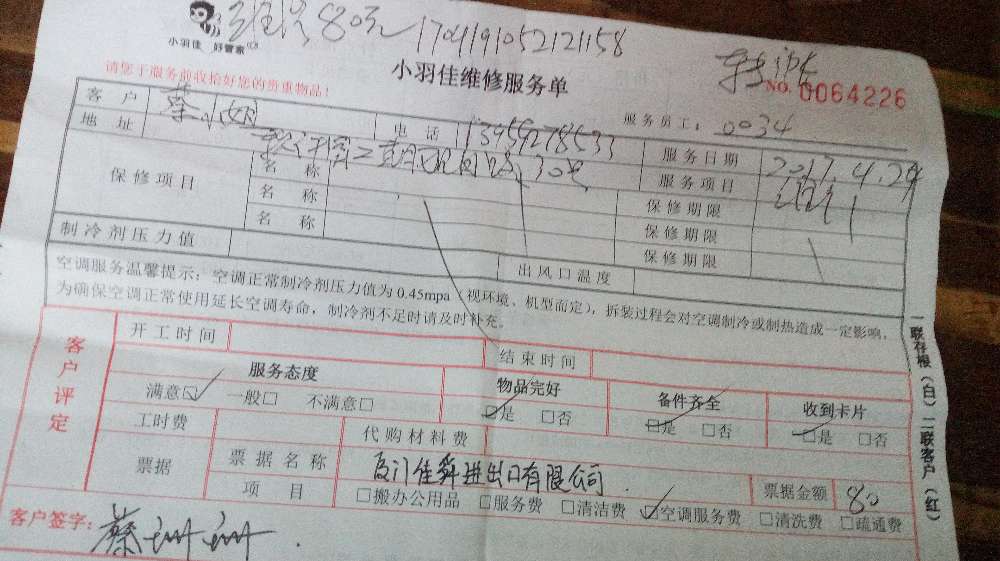 80元 1704191052121158
小羽佳 好管家
小羽佳维修服务单
请您于服务前收拾好您的贵重物品!
NO. 0064226
服务员工: 0034
客户 蔡小姐 电话 13959278533 服务日期 2017.4.29
地址 二期 30号 服务项目
保修项目 名称 保修期限
名称 保修期限
名称 保修期限
制冷剂压力值 出风口温度
空调服务温馨提示:空调正常制冷剂压力值为0.45mpa(视环境、机型而定),拆装过程会对空调制冷或制热造成一定影响,
为确保空调正常使用延长空调寿命,制冷剂不足时请及时补充。
客户评定
开工时间 结束时间
服务态度 物品完好 备件齐全 收到卡片
满意☑ 一般□ 不满意□ ☑是 □否 ☑是 □否 ☑是 □否
工时费 代购材料费
票据 票据名称 厦门佳舜进出口有限公司 票据金额 80
项目 □搬办公用品 □服务费 □清洁费 ☑空调服务费 □清洗费 □疏通费
客户签字: 蔡珊珊
一联存根(白)二联客户(红)